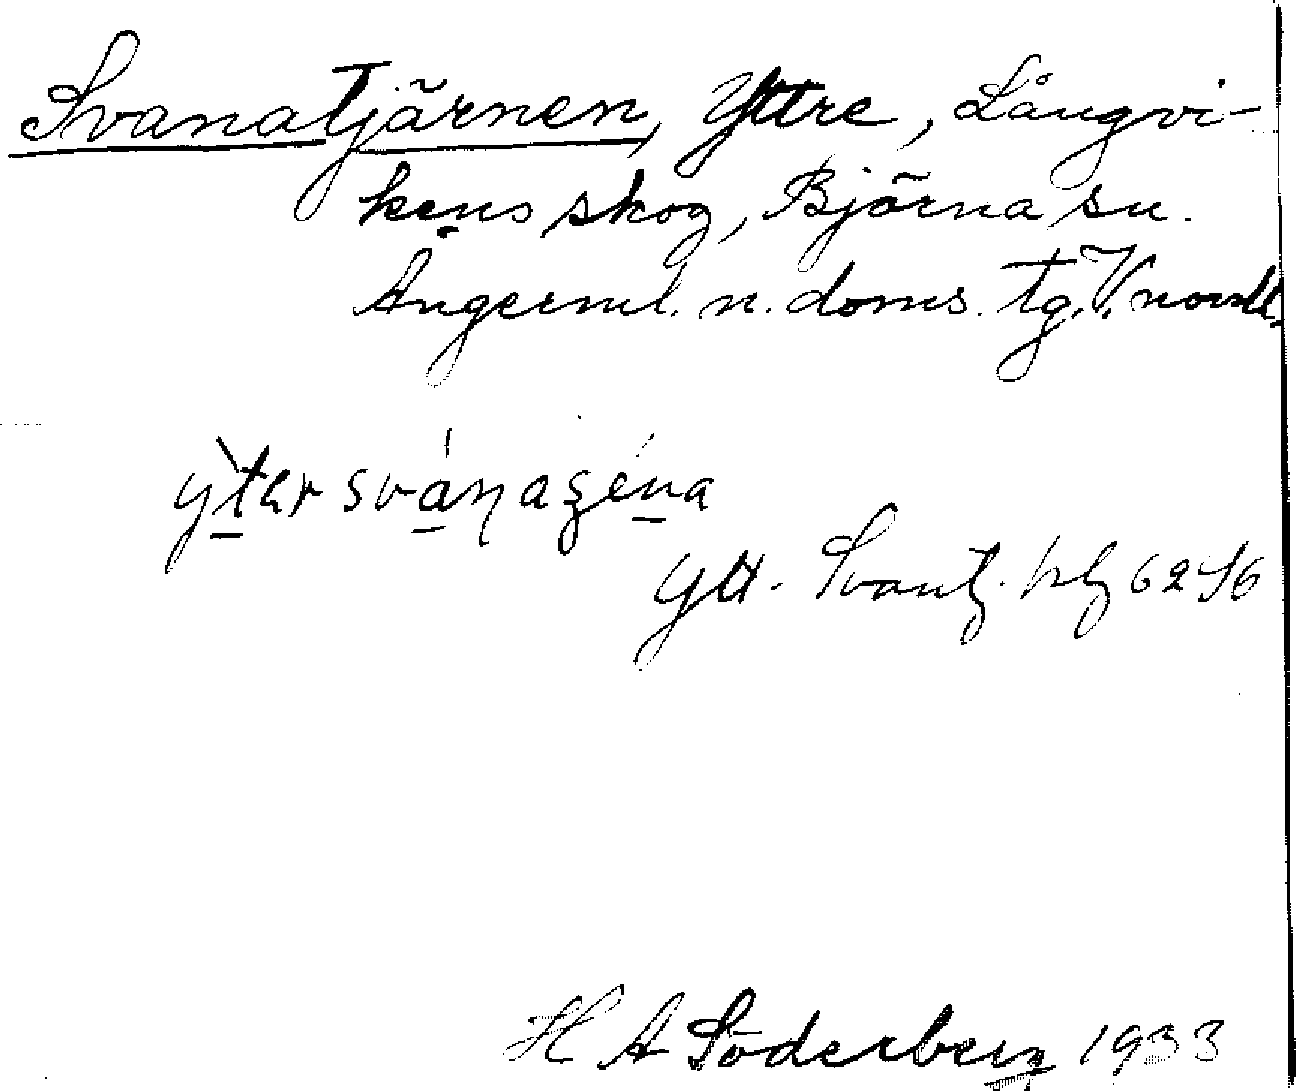 Svanatjärnen, Yttre, Långvi-
kens skog, Björna sn.
Ångerml. n. doms. tg. V. norrl.
ytər svánaʒéna
Ytt. Svantj. hfg 6246
H A Söderberg 1933